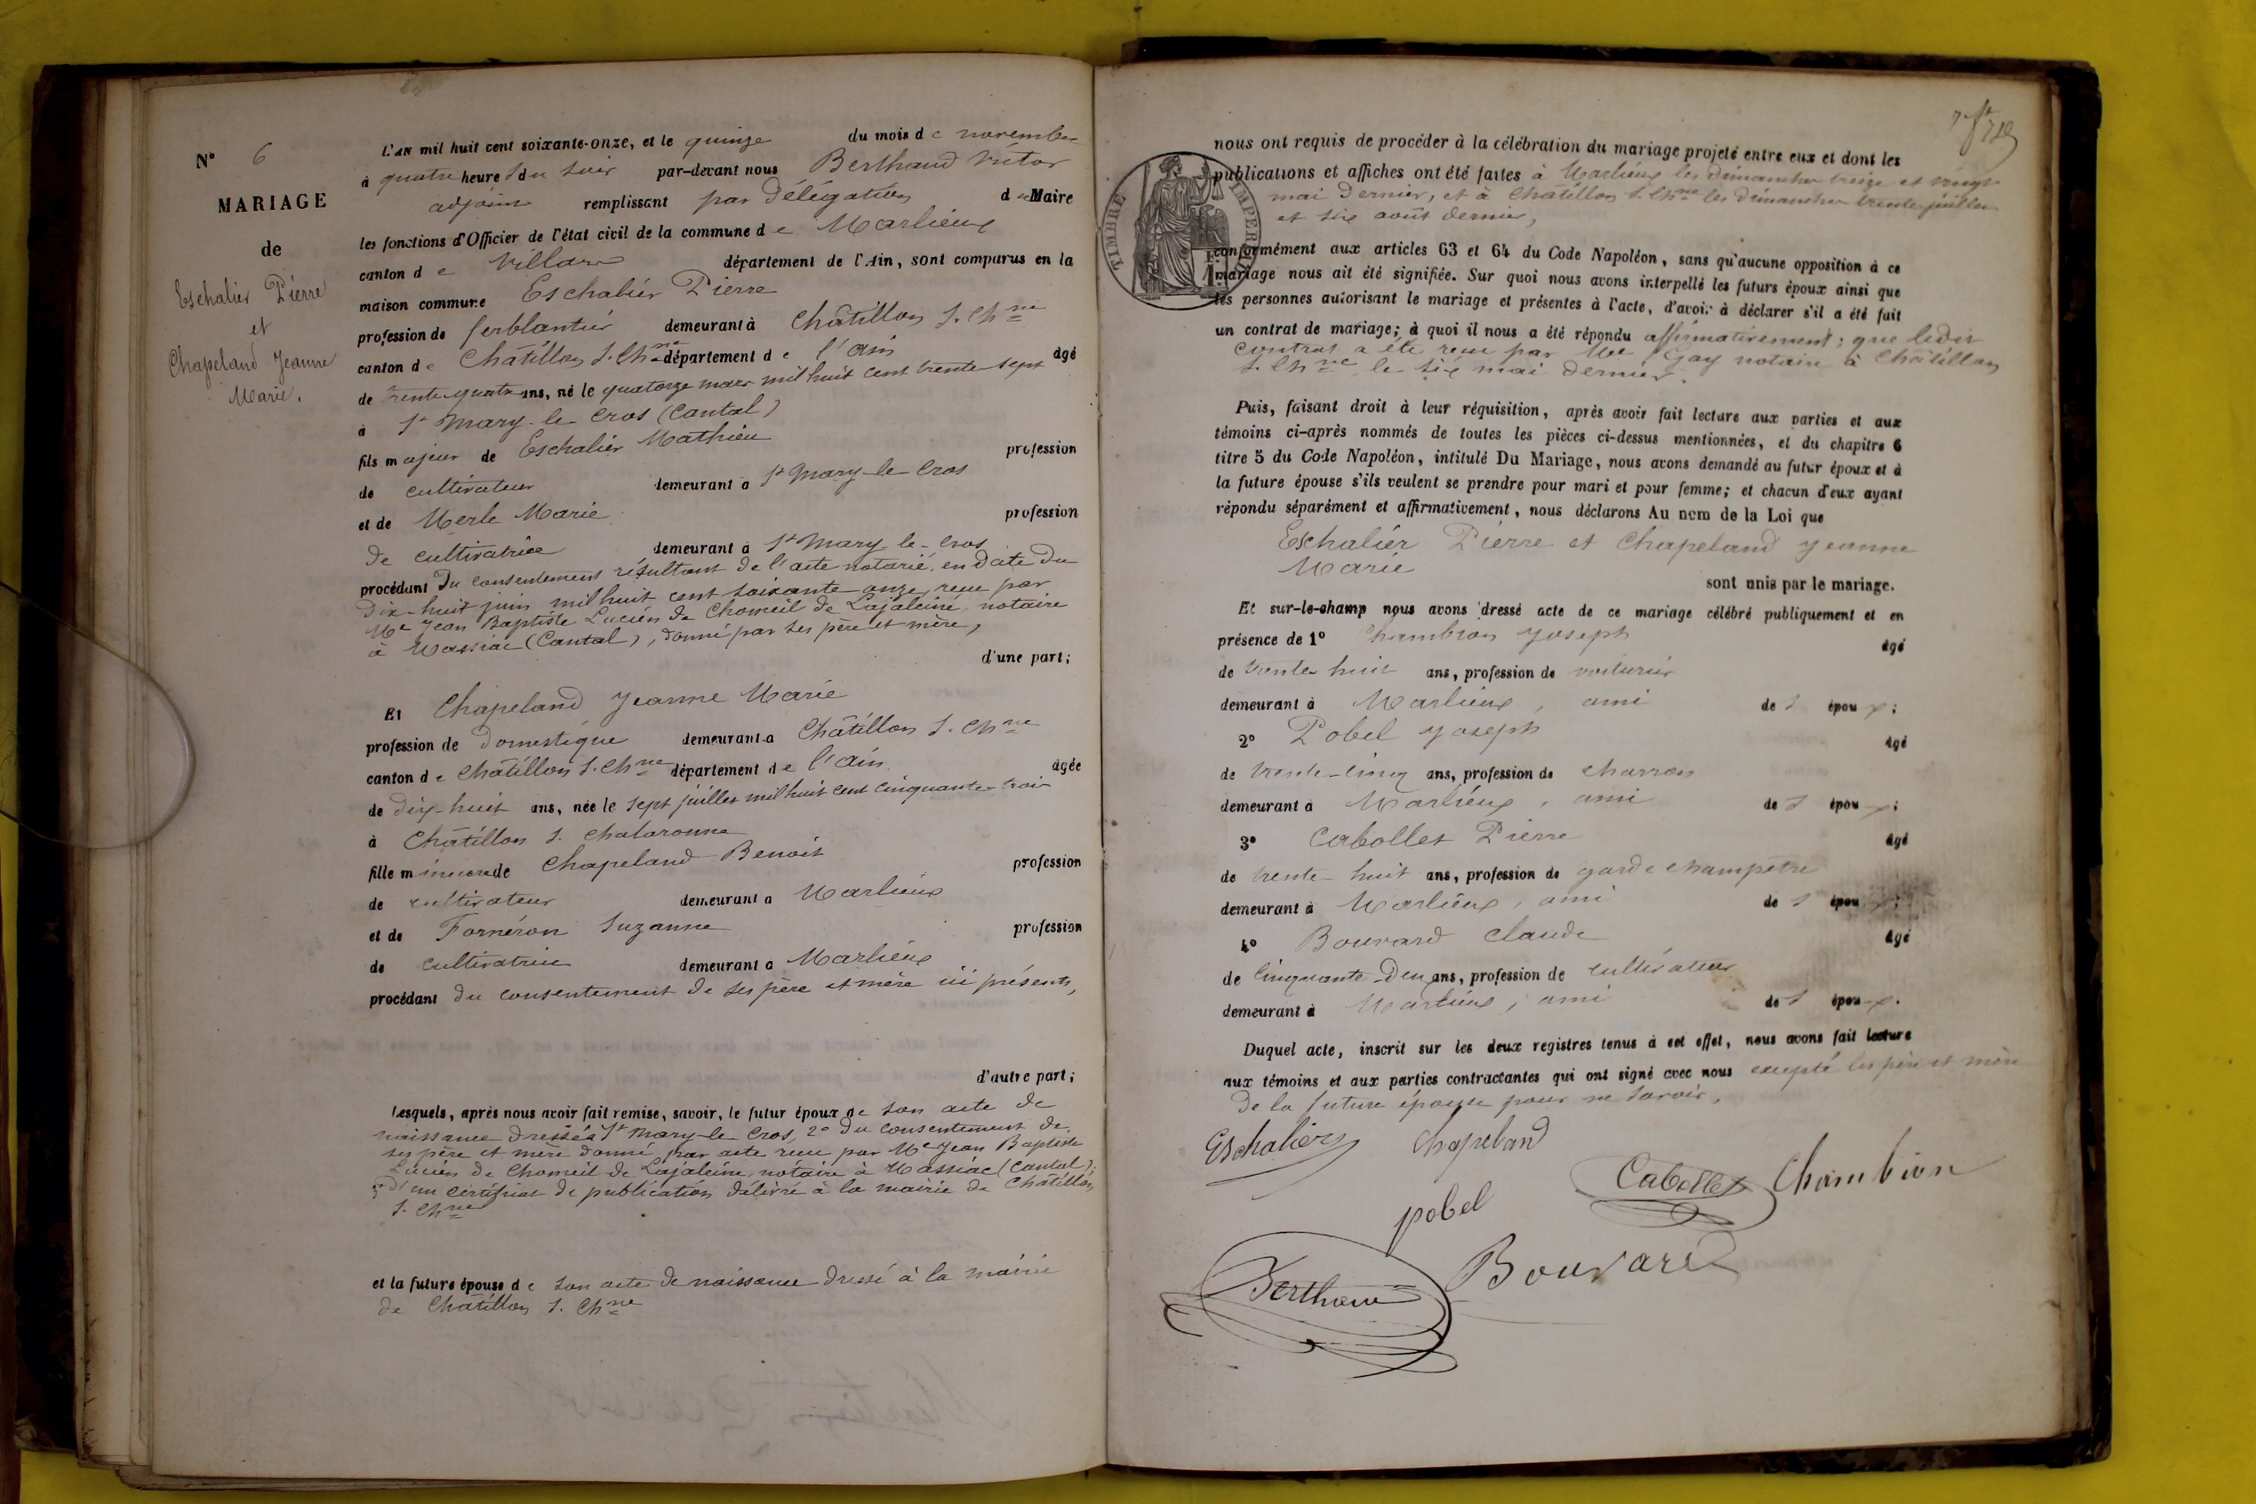 N° 6
MARIAGE
de
Eschalier Pierre
et
Chapeland Jeanne
Marie.
L'AN mil huit cent soixante-onze, et le quinze du mois de novembre
à quatre heures du soir par-devant nous Berthaud Victor
adjoint remplissant par délégation du Maire
les fonctions d'Officier de l'état civil de la commune de Marlieux
canton de Villars département de l'Ain, sont comparus en la
maison commune Eschalier Pierre
profession de ferblantier demeurant à Châtillon s. Chne
canton de Châtillon s. Chne département de l'Ain âgé
de trente-quatre ans, né le quatorze mars mil huit cent trente-sept
à St Mary-le-Cros (Cantal)
fils majeur de Eschalier Mathieu profession
de cultivateur demeurant à St Mary-le-Cros
et de Merle Marie profession
de cultivatrice demeurant à St Mary-le-Cros
procédant du consentement résultant de l'acte notarié, en date du
dix-huit juin mil huit cent soixante-onze, reçu par
Me Jean Baptiste Lucien de Chomeil de Lajaleine, notaire
à Massiac (Cantal), donné par ses père et mère,
d'une part;
Et Chapeland Jeanne Marie
profession de domestique demeurant à Châtillon s. Chne
canton de Châtillon s. Chne département de l'Ain âgée
de dix-huit ans, née le sept juillet mil huit cent cinquante-trois
à Châtillon s. Chalaronne
fille mineure de Chapeland Benoit profession
de cultivateur demeurant à Marlieux
et de Forneron Suzanne profession
de cultivatrice demeurant à Marlieux
procédant du consentement de ses père et mère ici présents,
d'autre part;
Lesquels, après nous avoir fait remise, savoir, le futur époux de son acte de
naissance dressé à St Mary-le-Cros, 2° du consentement de
ses père et mère donné par acte reçu par Me Jean Baptiste
Lucien de Chomeil de Lajaleine, notaire à Massiac (Cantal);
3° d'un certificat de publication délivré à la mairie de Châtillon
s. Chne
et la future épouse de son acte de naissance dressé à la mairie
de Châtillon s. Chne
nous ont requis de procéder à la célébration du mariage projeté entre eux et dont les
publications et affiches ont été faites à Marlieux les dimanches treize et vingt
mai dernier, et à Châtillon s. Chne les dimanches trente juillet
et six août dernier,
TIMBRE IMPERIAL
conformément aux articles 63 et 64 du Code Napoléon, sans qu'aucune opposition à ce
mariage nous ait été signifiée. Sur quoi nous avons interpellé les futurs époux ainsi que
les personnes autorisant le mariage et présentes à l'acte, d'avoir à déclarer s'il a été fait
un contrat de mariage; à quoi il nous a été répondu affirmativement; que ledit
contrat a été reçu par Me Gay notaire à Châtillon
s. Chne le six mai dernier.
Puis, faisant droit à leur réquisition, après avoir fait lecture aux parties et aux
témoins ci-après nommés de toutes les pièces ci-dessus mentionnées, et du chapitre 6
titre 5 du Code Napoléon, intitulé Du Mariage, nous avons demandé au futur époux et à
la future épouse s'ils veulent se prendre pour mari et pour femme; et chacun d'eux ayant
répondu séparément et affirmativement, nous déclarons Au nom de la Loi que
Eschalier Pierre et Chapeland Jeanne
Marie
sont unis par le mariage.
Et sur-le-champ nous avons dressé acte de ce mariage célébré publiquement et en
présence de 1° Chambion Joseph âgé
de trente-huit ans, profession de voiturier
demeurant à Marlieux, ami des époux;
2° Pobel Joseph âgé
de trente-cinq ans, profession de charron
demeurant à Marlieux, ami des époux;
3° Cabollet Pierre âgé
de trente-huit ans, profession de garde champêtre
demeurant à Marlieux, ami des époux;
4° Bouvard Claude âgé
de cinquante-deux ans, profession de cultivateur
demeurant à Marlieux, ami des époux.
Duquel acte, inscrit sur les deux registres tenus à cet effet, nous avons fait lecture
aux témoins et aux parties contractantes qui ont signé avec nous excepté les père et mère
de la future épouse pour ne savoir,
Eschalier Chapeland
Cabollet Chambion
pobel
Bouvard